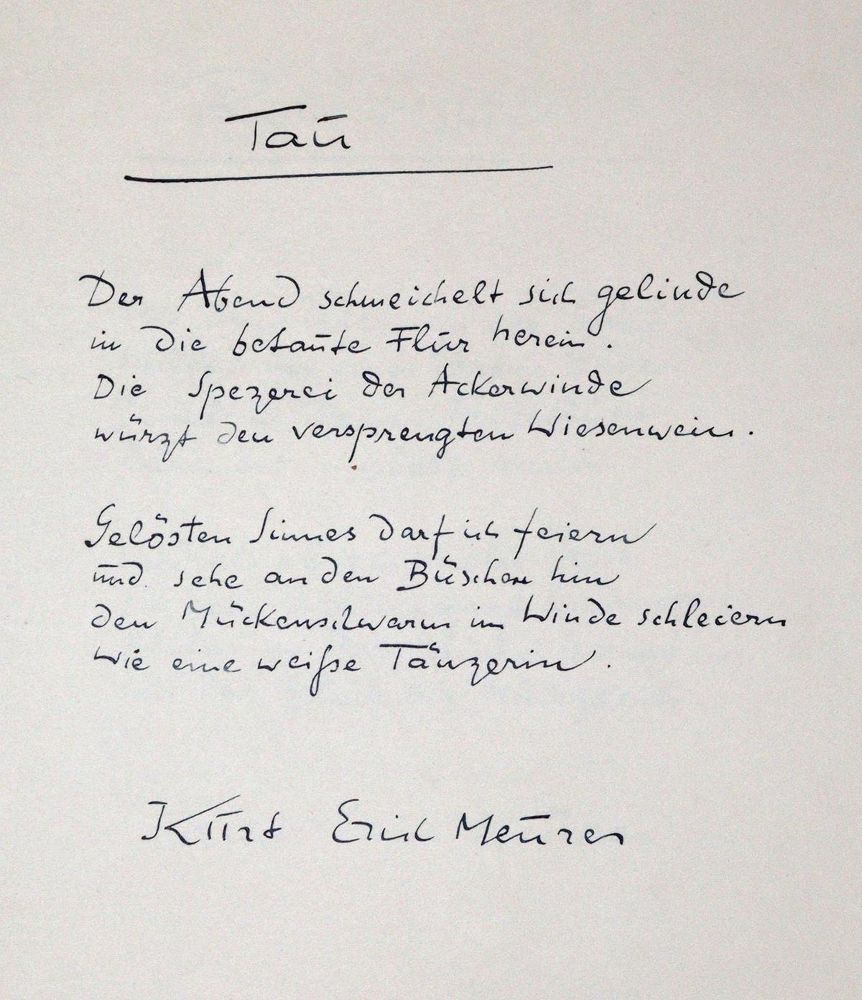 Tau
Der Abend schmeichelt sich gelinde
in die betaute Flur herein.
Die Spezerei der Ackerwinde
würzt den versprengten Wiesenwein.
Gelösten Sinnes darf ich feiern
und sehe an den Büschen hin
den Mückenschwarm im Winde schleiern
wie eine weiße Tänzerin.
Kurt Erich Meurer